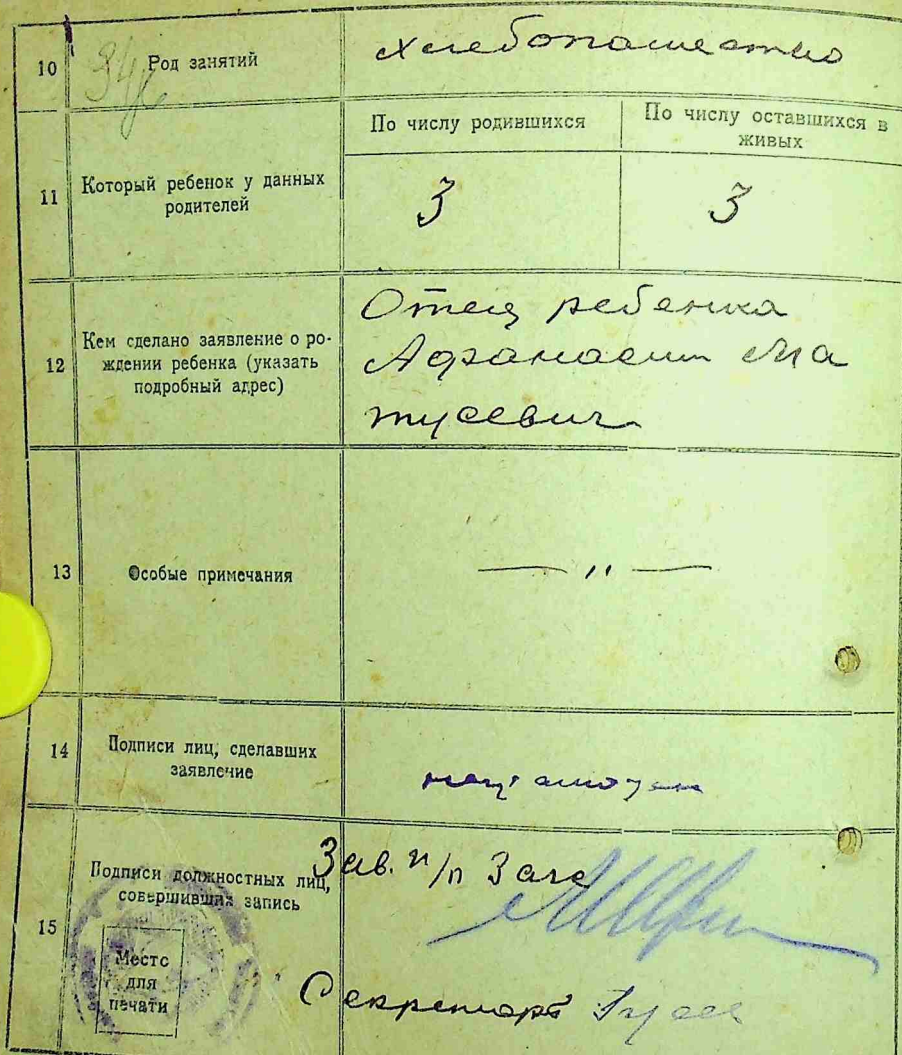 10 Род занятий хлебопашество
По числу родившихся По числу оставшихся в
живых
11 Который ребенок у данных
родителей
3 3
12 Кем сделано заявление о ро-
ждении ребенка (указать
подробный адрес)
Отец ребенка
Афанасий Ма
тусевич
13 Особые примечания — " —
14 Подписи лиц, сделавших
заявление
неграмотен
15 Подписи должностных лиц,
совершивших запись
Место
для
печати
Зав. п/п Загс
Секретарь